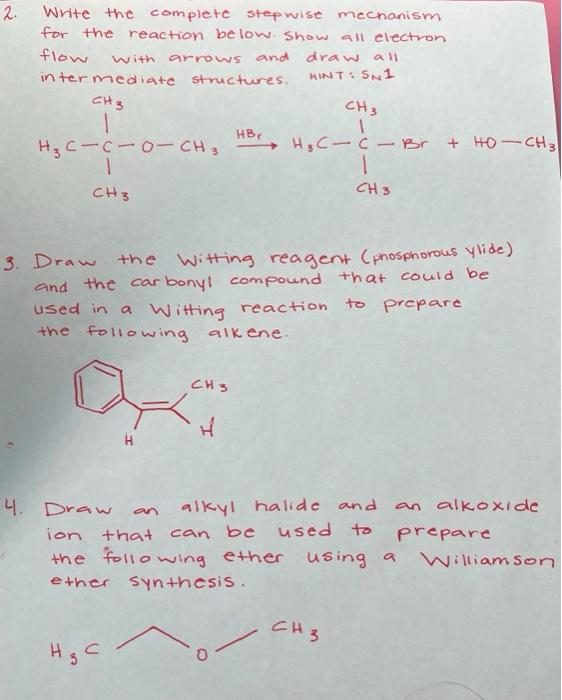 2. Write the complete stepwise mechanism
for the reaction below. Show all electron
flow with arrows and draw all
intermediate structures. HINT: SN1
CH3 CH3
H3C-C-O-CH3 HBr → H3C-C-Br + HO-CH3
CH3 CH3
3. Draw the Witting reagent (phosphorous ylide)
and the carbonyl compound that could be
used in a Witting reaction to prepare
the following alkene.
CH3
H H
4. Draw an alkyl halide and an alkoxide
ion that can be used to prepare
the following ether using a Williamson
ether synthesis.
CH3
H3C O